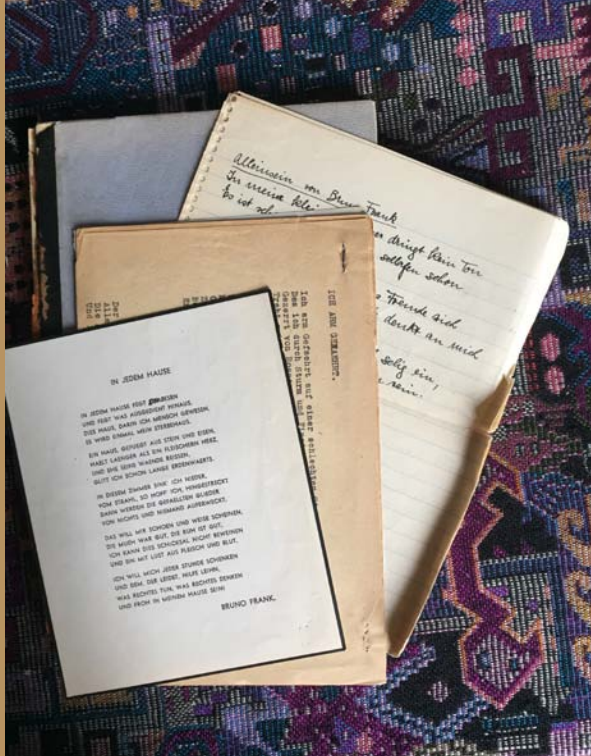 Alleinsein von Bruno Frank
In meine dringt kein Ton
Es ist schlafen schon
Fremde sich
denkt an mich
selig ein,
sein.
ICH ARM
Ich arm auf einer schlechten
durch Sturm und
Gezerrt von
Der
Die
Und
IN JEDEM HAUSE
IN JEDEM HAUSE FEGT
UND FEGT WAS AUSGEDIENT HINAUS,
DIES HAUS, DARIN ICH MENSCH GEWESEN,
ES WIRD EINMAL MEIN STERBEHAUS.
EIN HAUS, GEFUEGT AUS STEIN UND EISEN,
HAELT LAENGER ALS EIN FLEISCHERN HERZ,
UND EHE SEINE WAENDE REISSEN,
GLITT ICH SCHON LANGE ERDENWAERTS.
IN DIESEM ZIMMER SINK ICH NIEDER,
VOM STRAHL, SO HOFF ICH, HINGESTRECKT
DARIN WERDEN DIE GEFAELLTEN GLIEDER
VON NICHTS UND NIEMAND AUFERWECKT.
DAS WILL MIR SCHOEN UND WEISE SCHEINEN,
DIE MUEH WAR GUT, DIE RUH IST GUT,
ICH KANN DIES SCHICKSAL NICHT BEWEINEN
UND BIN MIT LUST AUS FLEISCH UND BLUT.
ICH WILL MICH JEDER STUNDE SCHENKEN
UND DEM, DER LEIDET, HILFE LEIHN,
WAS RECHTES TUN, WAS RECHTES DENKEN
UND FROH IN MEINEM HAUSE SEIN!
BRUNO FRANK.